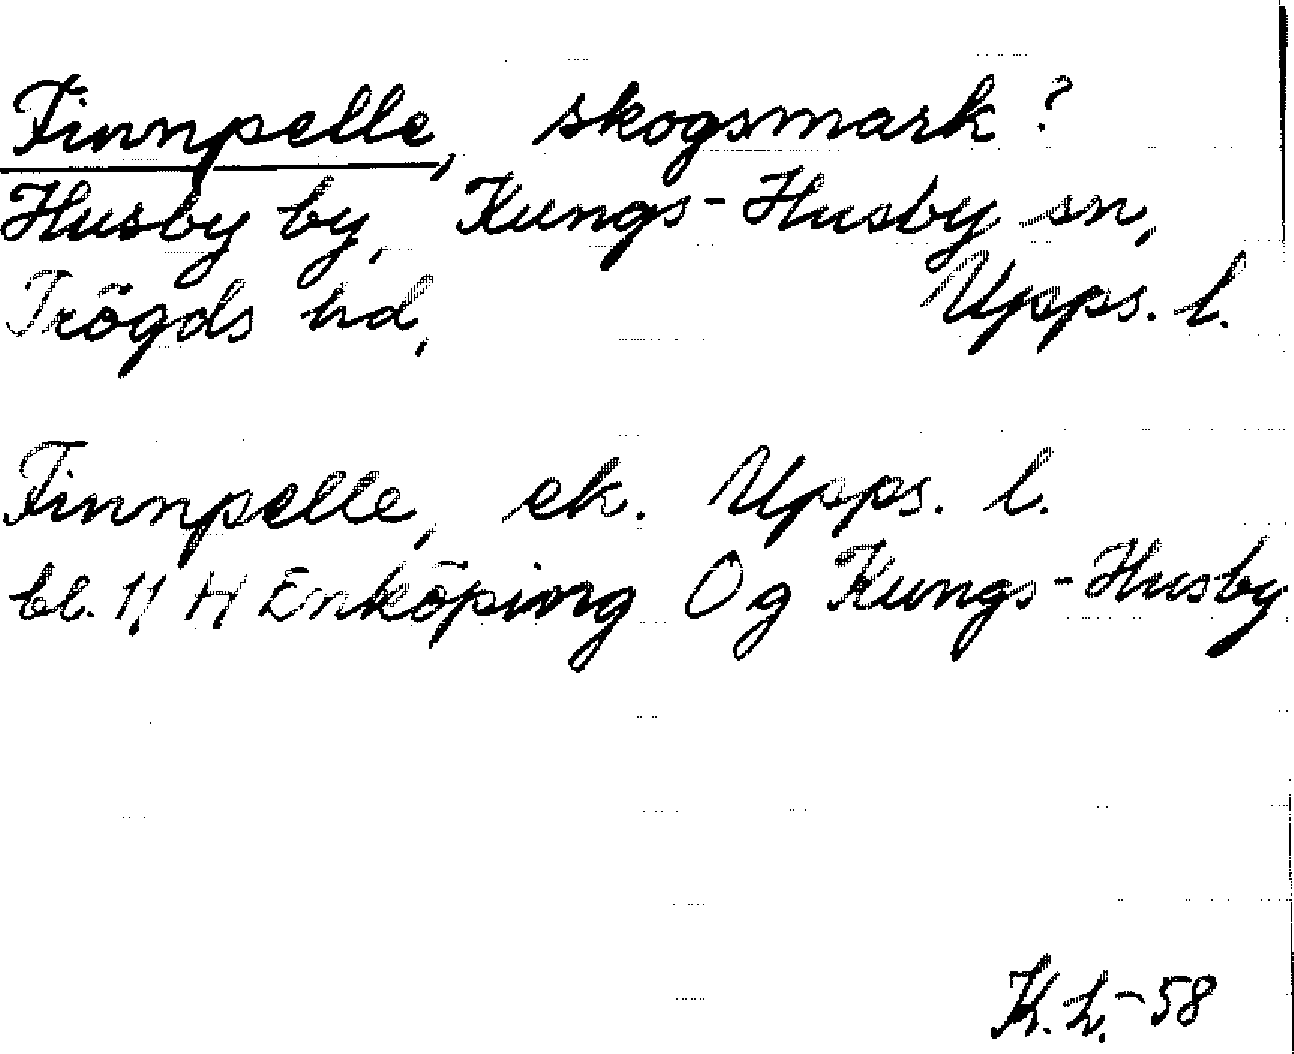 Finnpelle, skogsmark?
Husby by, Kungs-Husby sn,
Trögds hd, Upps. l.
Finnpelle, ek. Upps. l.
bl. 11 H Enköping Og Kungs-Husby
K.L.-58